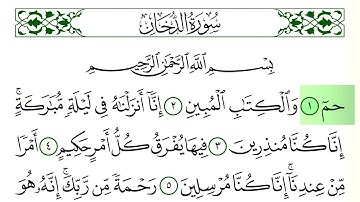 سُورَةُ الدُّخَانِ
بِسْمِ اللَّهِ الرَّحْمَٰنِ الرَّحِيمِ
حمٓ ١ وَالْكِتَابِ الْمُبِينِ ٢ إِنَّا أَنزَلْنَاهُ فِي لَيْلَةٍ مُّبَارَكَةٍ ۚ
إِنَّا كُنَّا مُنذِرِينَ ٣ فِيهَا يُفْرَقُ كُلُّ أَمْرٍ حَكِيمٍ ٤ أَمْرًا
مِّنْ عِندِنَا ۚ إِنَّا كُنَّا مُرْسِلِينَ ٥ رَحْمَةً مِّن رَّبِّكَ ۚ إِنَّهُ هُوَ